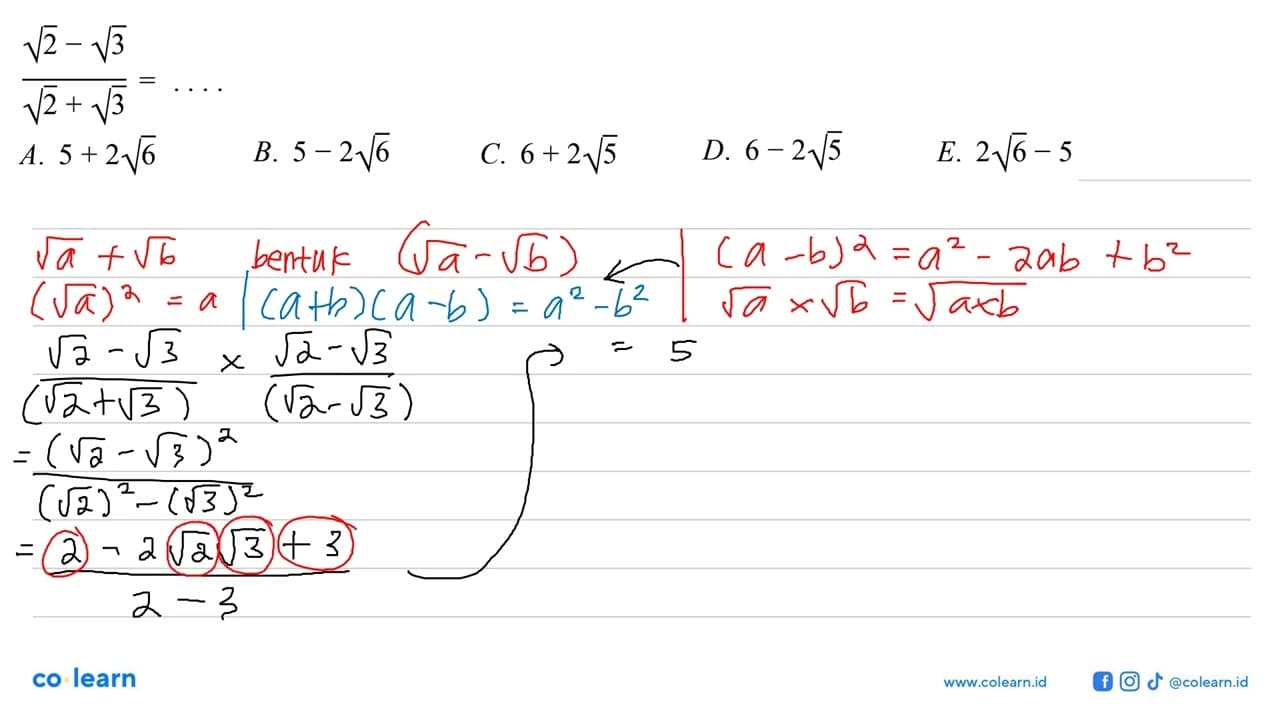 (√2 − √3)/(√2 + √3) = ....
A. 5 + 2√6 B. 5 − 2√6 C. 6 + 2√5 D. 6 − 2√5 E. 2√6 − 5
√a + √b bentuk (√a − √b) | (a − b)² = a² − 2ab + b²
(√a)² = a | (a+b)(a−b) = a² − b² | √a × √b = √a×b
(√2 − √3)/(√2+√3) × (√2 − √3)/(√2 − √3) = 5
= (√2 − √3)²/(√2)² − (√3)²
= 2 − 2√2√3 + 3/2 − 3
co learn www.colearn.id @colearn.id